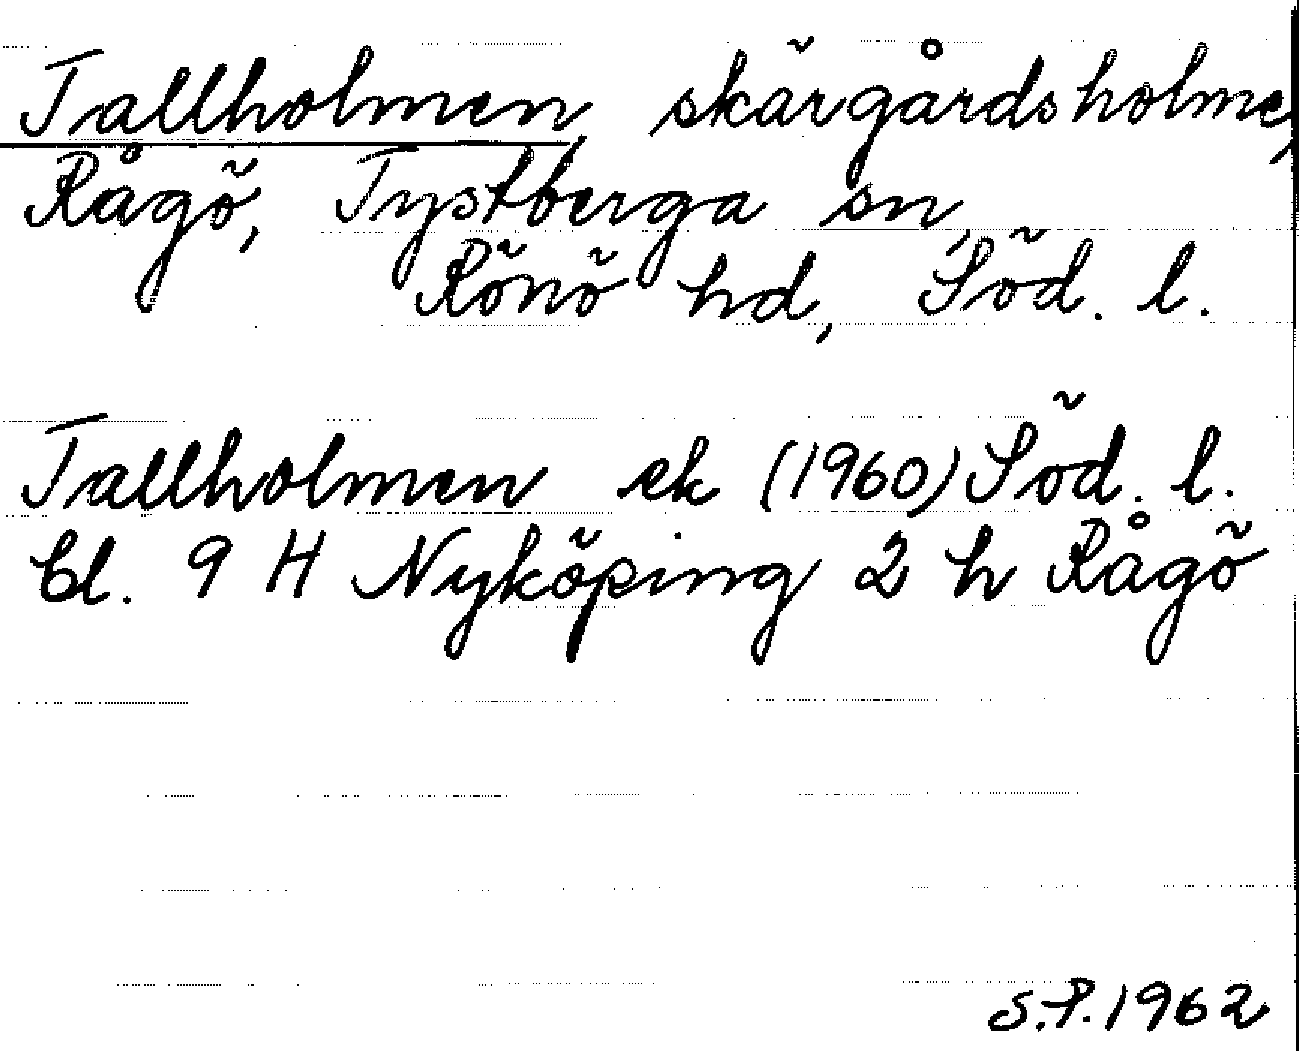 Tallholmen, skärgårdsholme,
Rågö, Tystberga sn,
Rönö hd, Söd. l.
Tallholmen ek (1960) Söd. l.
bl. 9 H Nyköping 2 h Rågö
S.P. 1962